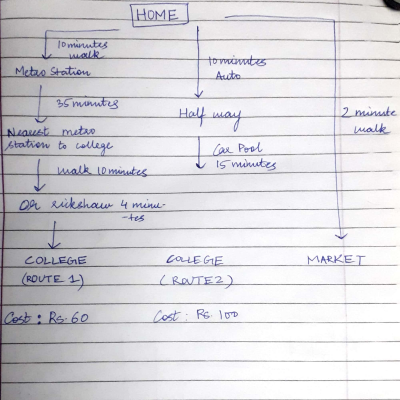 HOME
10 minutes
walk
Metro Station
35 minutes
Nearest metro
station to college
walk 10 minutes
OR rickshaw 4 minu-
-tes
COLLEGE
(ROUTE 1)
Cost : Rs. 60
10 minutes
Auto
Half way
Car Pool
15 minutes
COLLEGE
(ROUTE 2)
Cost : Rs. 100
2 minute
walk
MARKET